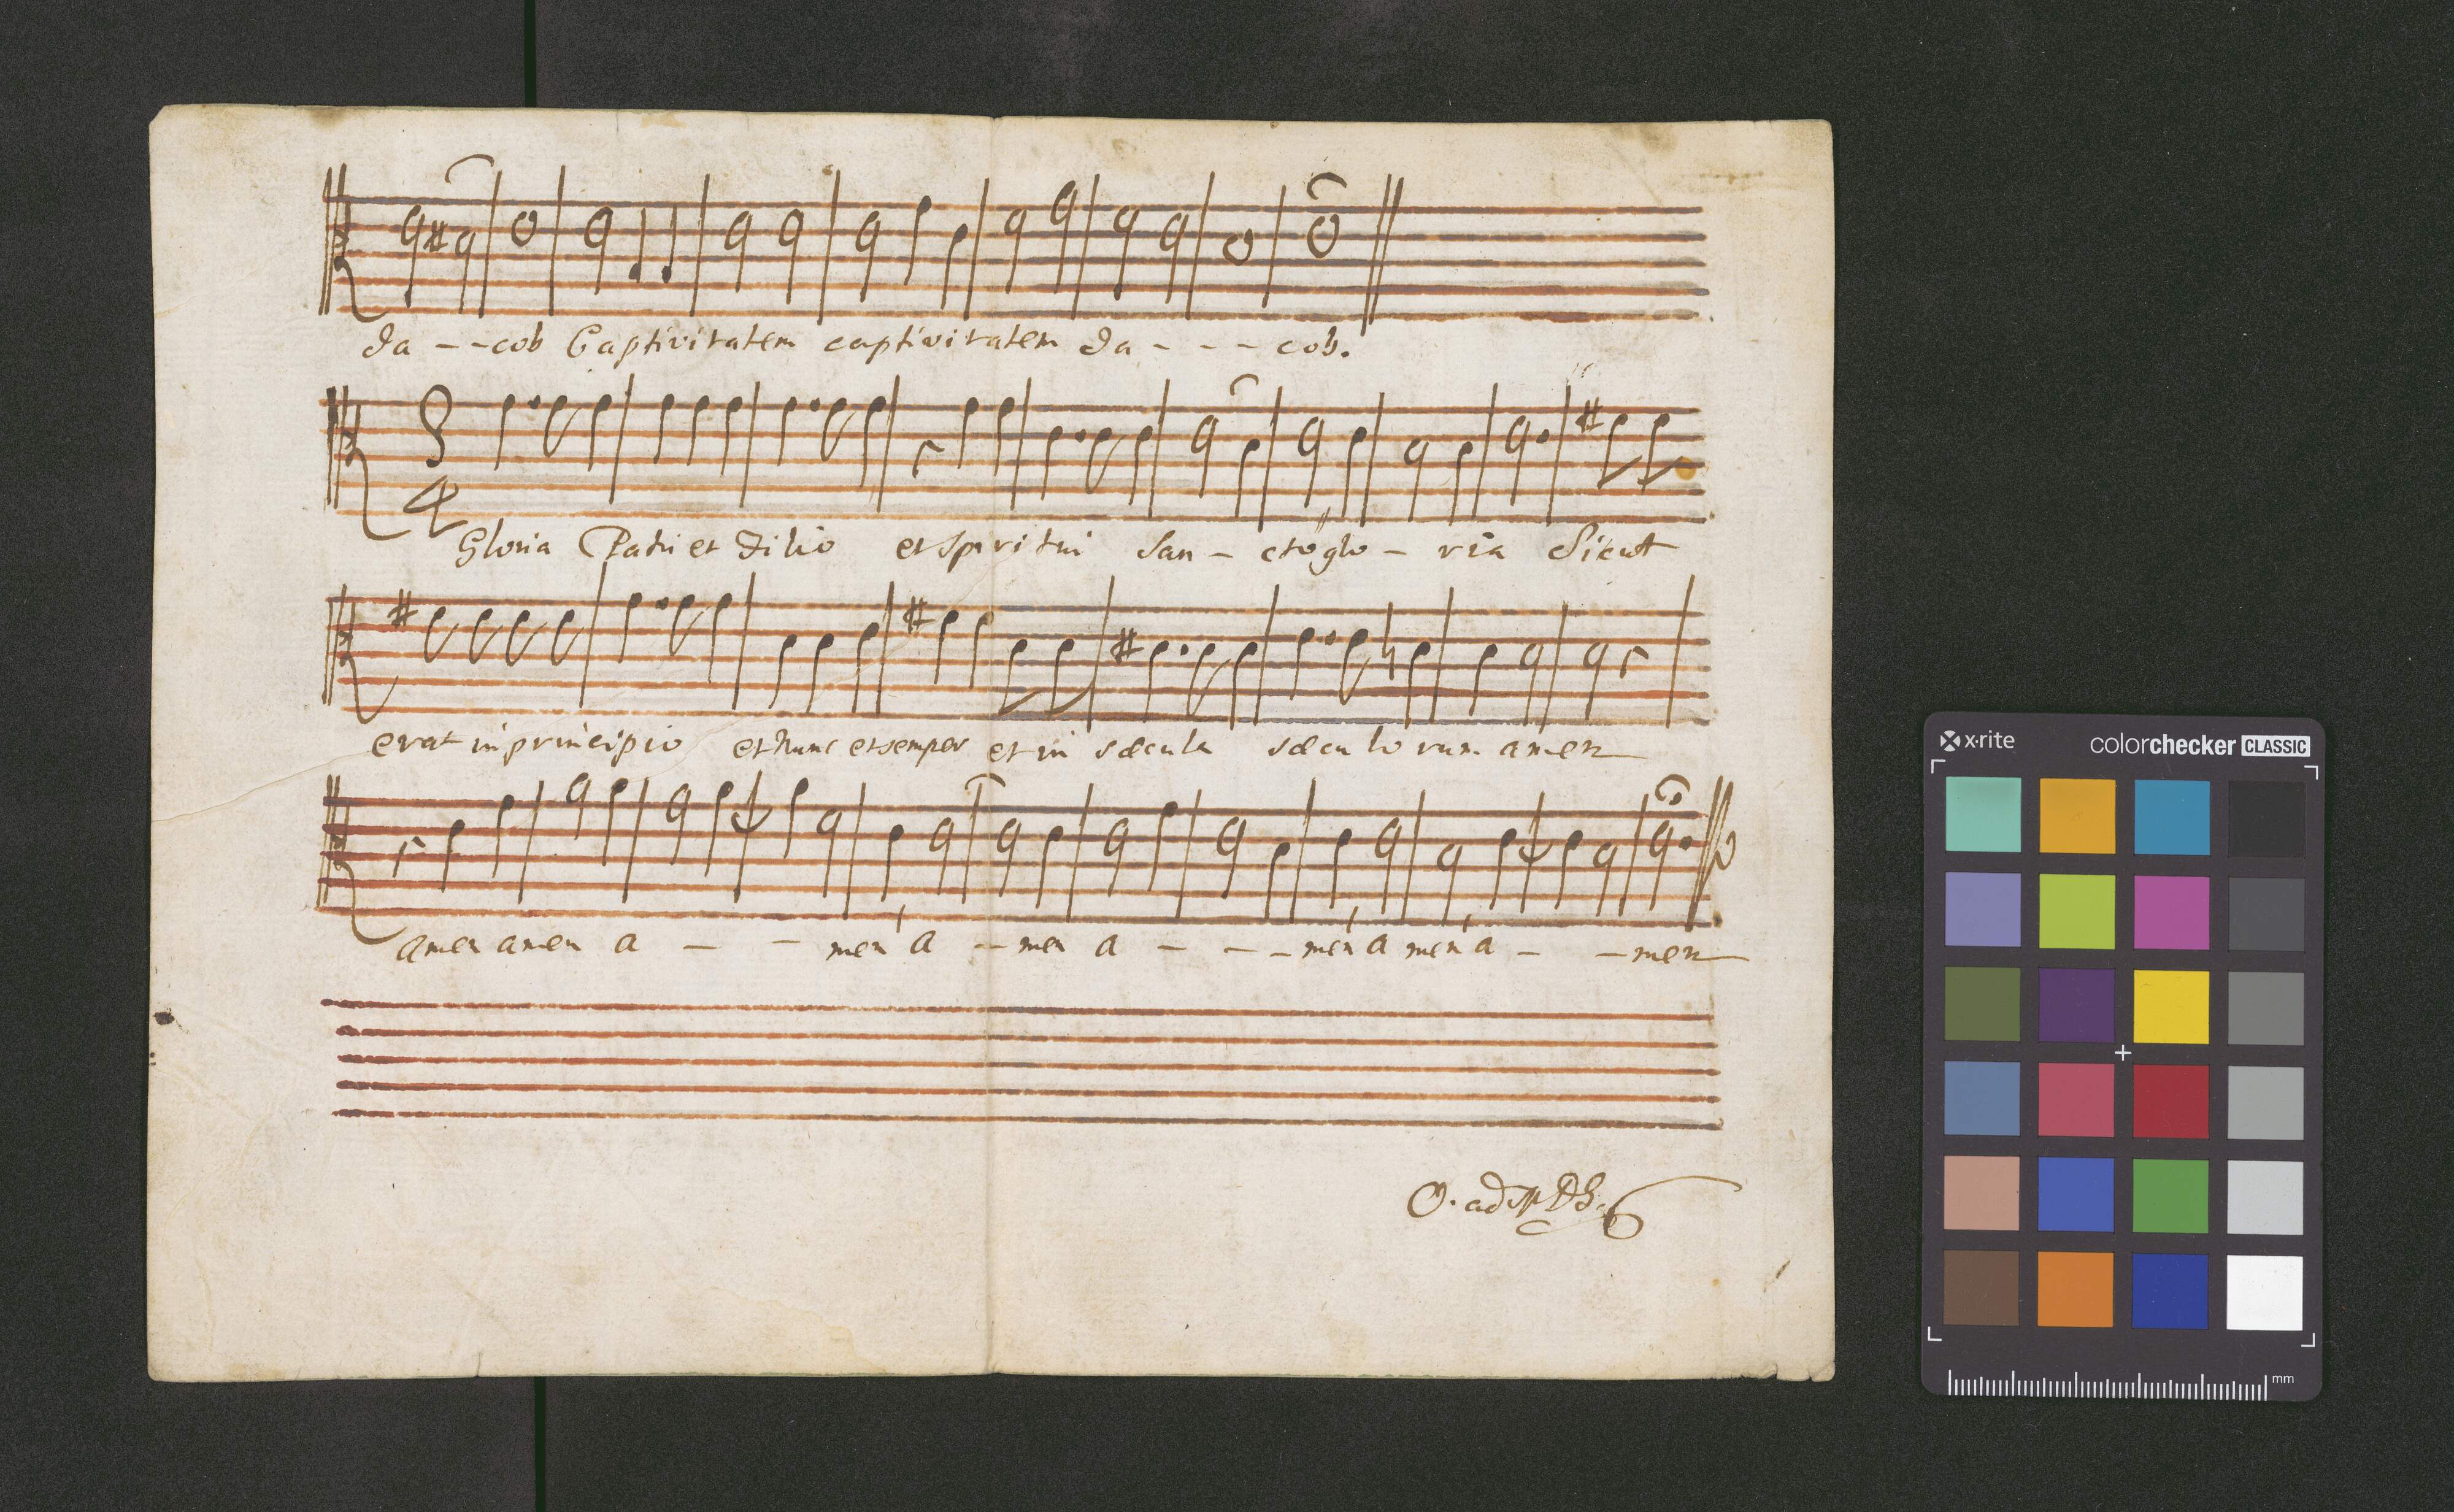 Ja - - cob Captivitatem captivitatem Ja - - - cob.
3
4
Gloria Patri et Filio et Spiritui San - cto " glo - ria Sicut
erat in principio et nunc et semper et in sæcula sæculorum amen
amen amen a - - men a - - men a - - - men a men a - - men
O. ad M D G.
x·rite colorchecker CLASSIC
mm